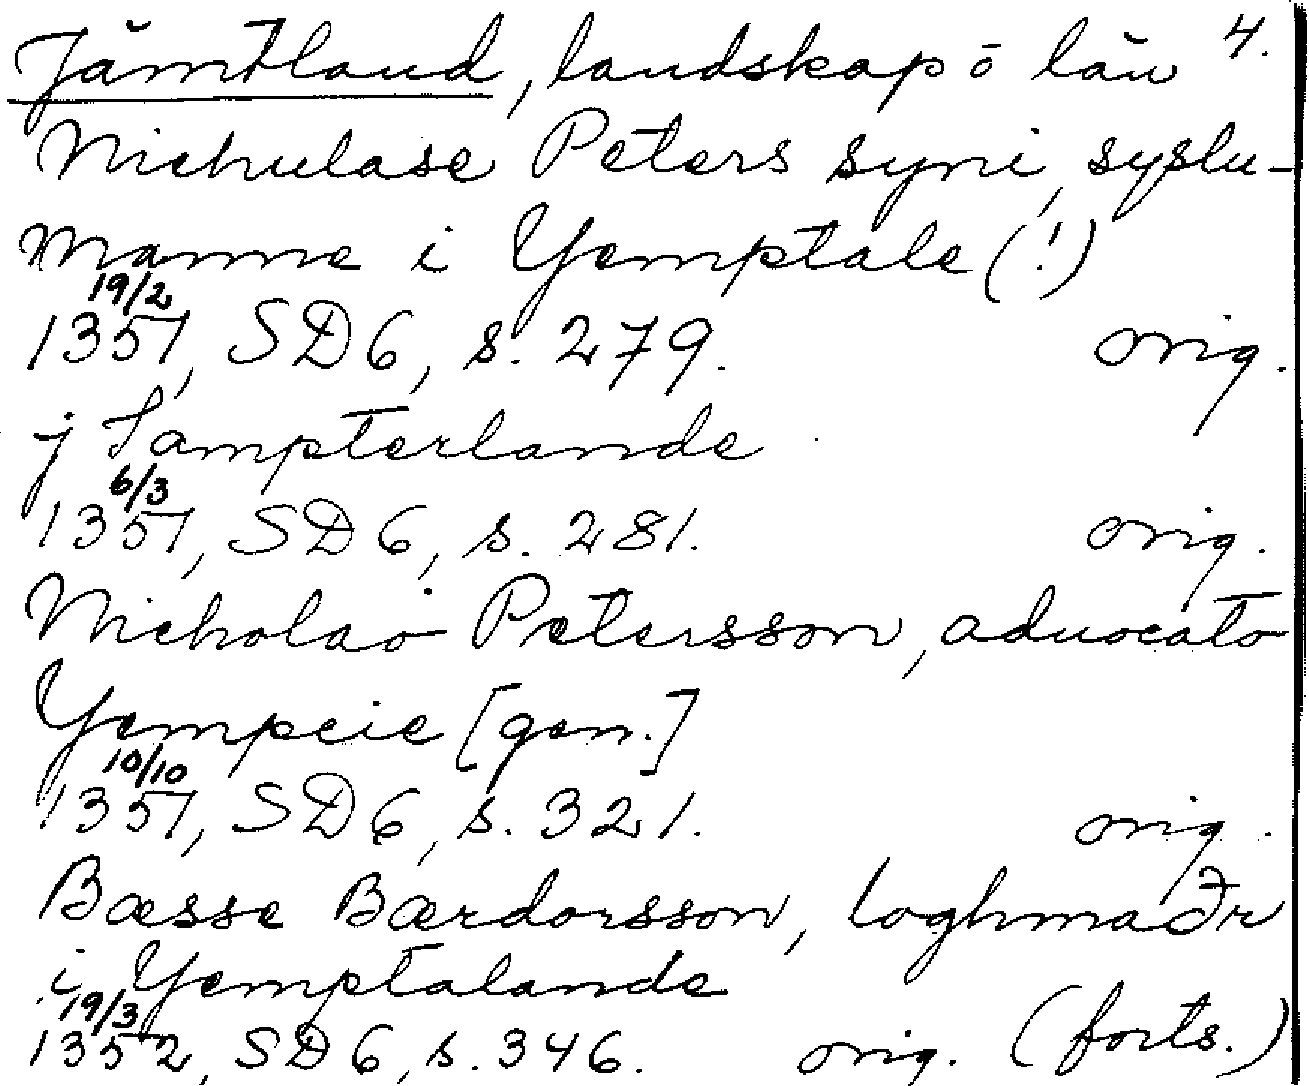 Jämtland, landskap o län 4.
Nichulase Peters syni, syslu-
manne i Yemptale (!)
19/2
1351, SD 6, s. 279. orig.
j Iampterlande
6/3
1351, SD 6, s. 281. orig.
Nicholao Petersson, aduocato
Yempcie [gen.]
10/10
1351, SD 6, s. 321. orig.
Bæsse Bærdorsson, loghmaðr
i Yemptalande
19/3
1352, SD 6, s. 346. orig. (forts.)